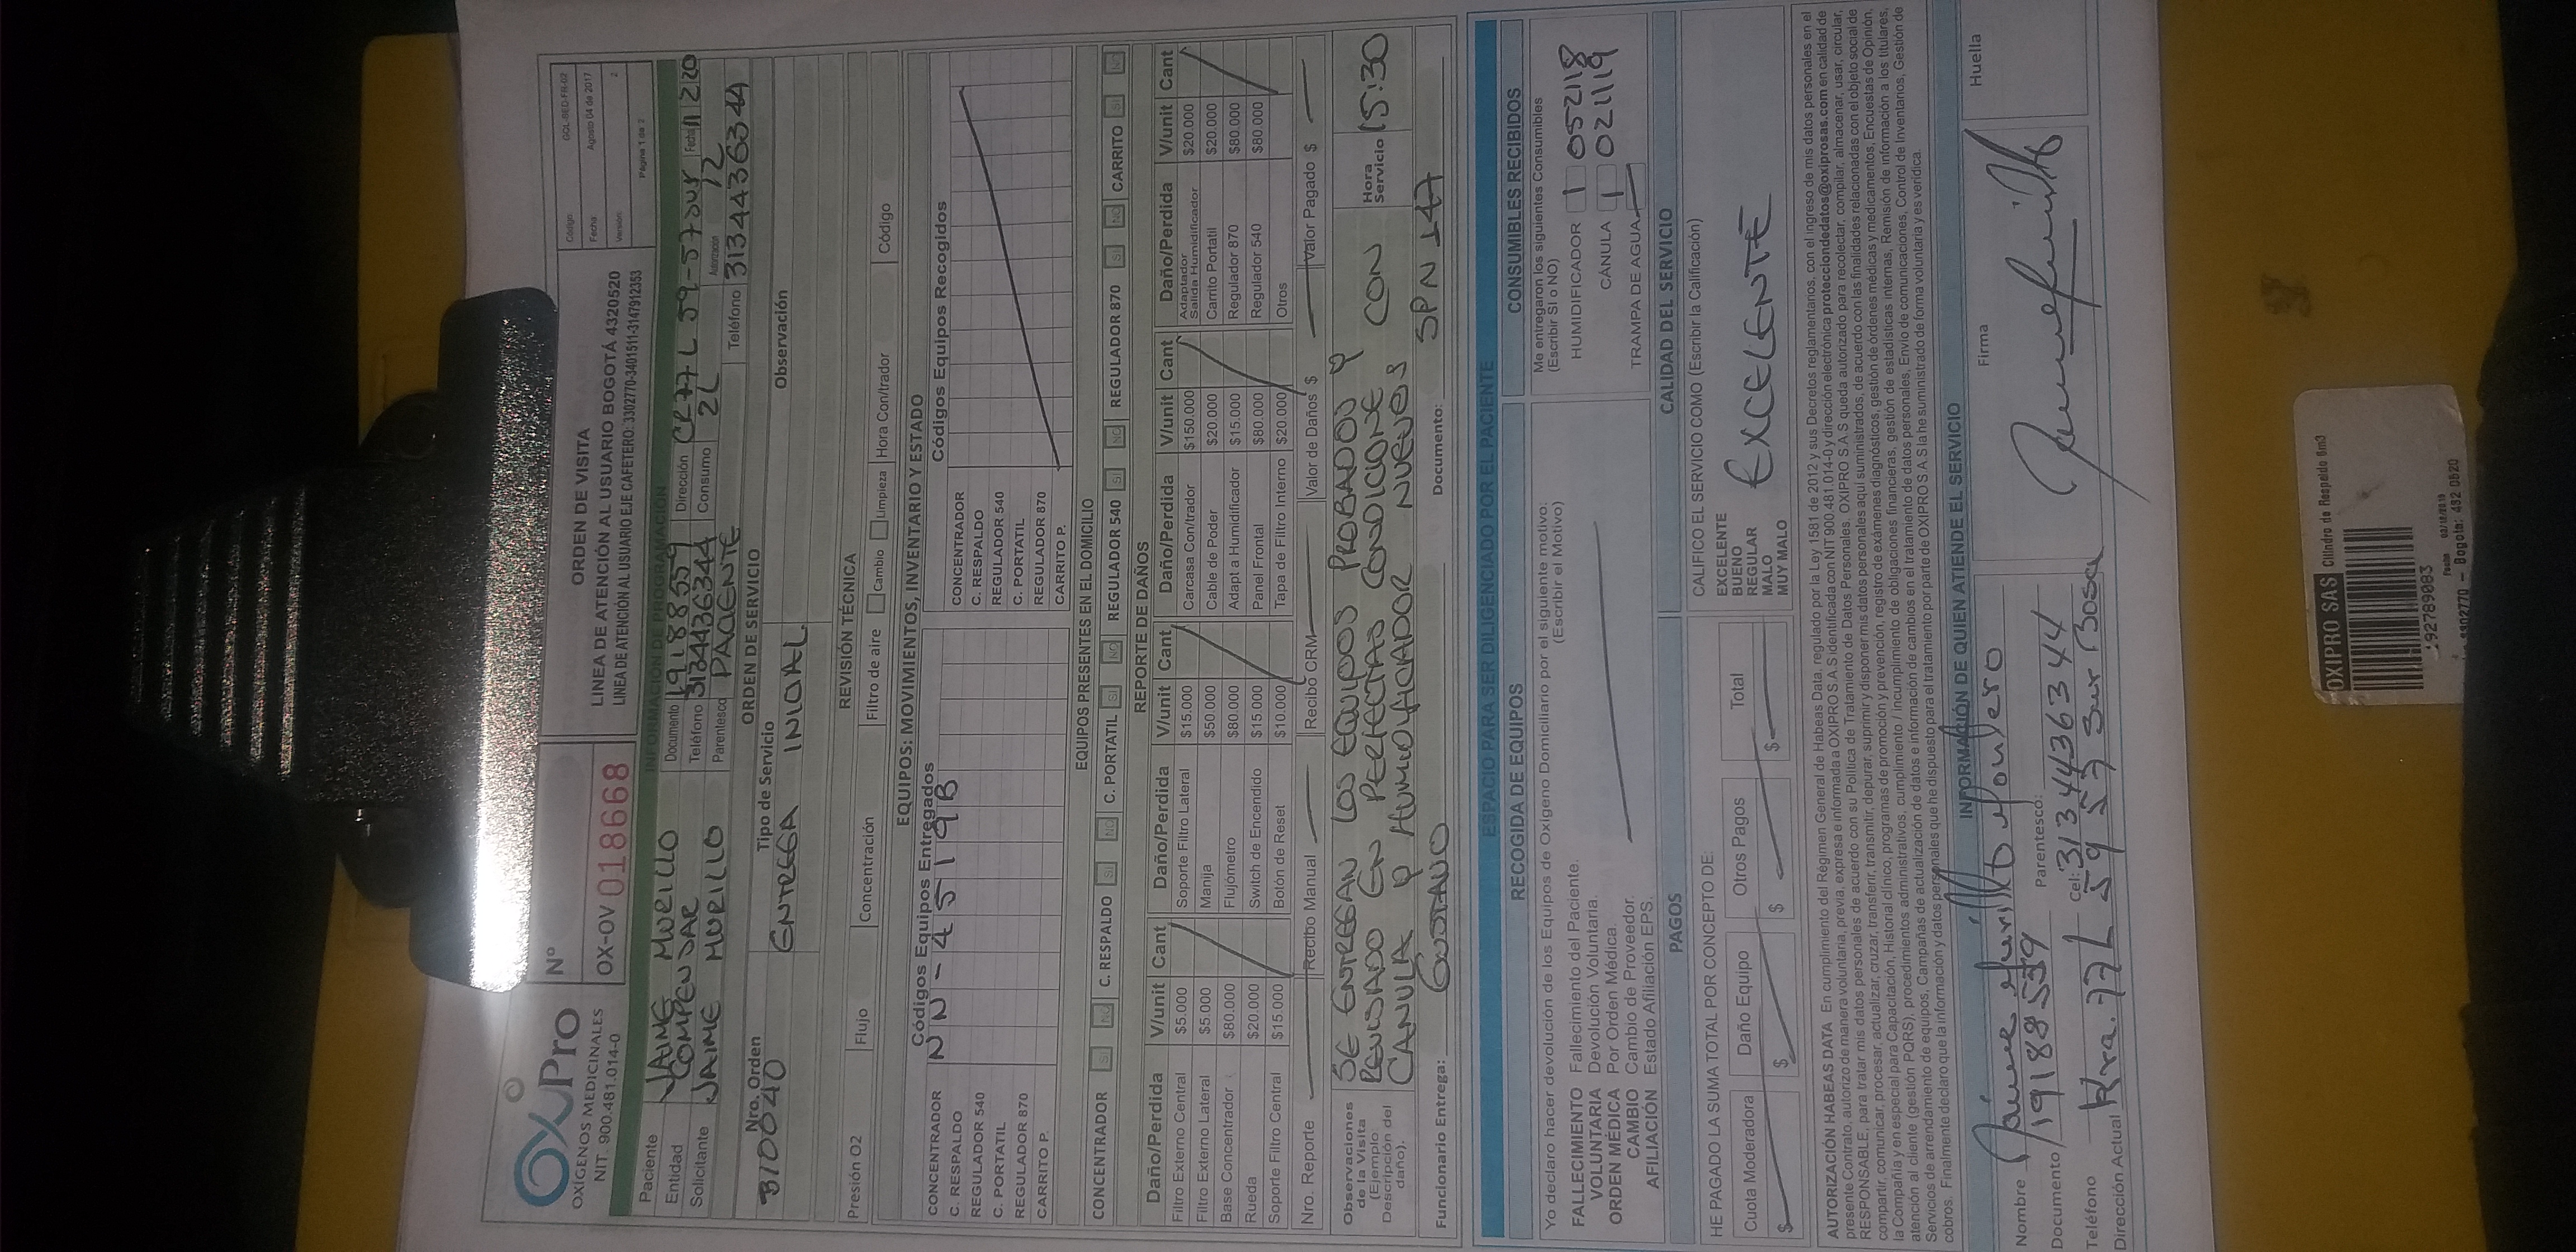 OxiPro
OXÍGENOS MEDICINALES
NIT. 900.481.014-0
Nº
OX-OV 018668
ORDEN DE VISITA
LINEA DE ATENCIÓN AL USUARIO BOGOTÁ 4320520
LINEA DE ATENCIÓN AL USUARIO EJE CAFETERO: 3302770-3401511-3147912353
Código GCL-SED-FR-02
Fecha Agosto 04 de 2017
Versión 2
Página 1 de 2
INFORMACIÓN DE PROGRAMACIÓN
Paciente JAIME MURILLO Documento 19188559 Dirección CR 77 L 59-57 SUR Fecha 11 2 20
Entidad COMPENSAR Teléfono 3134436344 Consumo 2L Autorización 12
Solicitante JAIME MURILLO Parentesco PACIENTE Teléfono 3134436344
ORDEN DE SERVICIO
Nro. Orden Tipo de Servicio Observación
310040 ENTREGA INICIAL
REVISIÓN TÉCNICA
Presión O2 Flujo Concentración Filtro de aire Cambio Limpieza Hora Con/trador Código
EQUIPOS: MOVIMIENTOS, INVENTARIO Y ESTADO
Códigos Equipos Entregados Códigos Equipos Recogidos
CONCENTRADOR NN-45198 CONCENTRADOR
C. RESPALDO C. RESPALDO
REGULADOR 540 REGULADOR 540
C. PORTATIL C. PORTATIL
REGULADOR 870 REGULADOR 870
CARRITO P. CARRITO P.
EQUIPOS PRESENTES EN EL DOMICILIO
CONCENTRADOR SI NO C. RESPALDO SI NO C. PORTATIL SI NO REGULADOR 540 SI NO REGULADOR 870 SI NO CARRITO SI NO
REPORTE DE DAÑOS
Daño/Perdida V/unit Cant Daño/Perdida V/unit Cant Daño/Perdida V/unit Cant Daño/Perdida V/unit Cant
Filtro Externo Central $5.000 Soporte Filtro Lateral $15.000 Carcasa Con/trador $150.000 Adaptador Salida Humidificador $20.000
Filtro Externo Lateral $5.000 Manija $50.000 Cable de Poder $20.000 Carrito Portatil $20.000
Base Concentrador $80.000 Flujómetro $80.000 Adapt a Humidificador $15.000 Regulador 870 $80.000
Rueda $20.000 Switch de Encendido $15.000 Panel Frontal $80.000 Regulador 540 $80.000
Soporte Filtro Central $15.000 Botón de Reset $10.000 Tapa de Filtro Interno $20.000 Otros
Nro. Reporte Recibo Manual Recibo CRM Valor de Daños $ Valor Pagado $
Observaciones de la Visita (Ejemplo: Descripción del daño).
SE ENTREGAN LOS EQUIPOS PROBADOS Y
REVISADO EN PERFECTAS CONDICIONE CON
CANULA Y HUMIDIFICADOR NUEVOS
Hora Servicio 15:30
SPN 147
Funcionario Entrega: GUSTAVO Documento:
ESPACIO PARA SER DILIGENCIADO POR EL PACIENTE
RECOGIDA DE EQUIPOS
Yo declaro hacer devolución de los Equipos de Oxígeno Domiciliario por el siguiente motivo:
(Escribir el Motivo)
FALLECIMIENTO Fallecimiento del Paciente.
VOLUNTARIA Devolución Voluntaria.
ORDEN MÉDICA Por Orden Médica.
CAMBIO Cambio de Proveedor.
AFILIACIÓN Estado Afiliación EPS.
CONSUMIBLES RECIBIDOS
Me entregaron los siguientes Consumibles
(Escribir SI o NO)
HUMIDIFICADOR 1 052118
CÁNULA 1 021119
TRAMPA DE AGUA
PAGOS
HE PAGADO LA SUMA TOTAL POR CONCEPTO DE:
Cuota Moderadora Daño Equipo Otros Pagos Total
$ $ $
CALIDAD DEL SERVICIO
CALIFICO EL SERVICIO COMO (Escribir la Calificación)
EXCELENTE
BUENO
REGULAR
MALO
MUY MALO
EXCELENTE
AUTORIZACIÓN HABEAS DATA. En cumplimiento del Régimen General de Habeas Data, regulado por la Ley 1581 de 2012 y sus Decretos reglamentarios, con el ingreso de mis datos personales en el
presente Contrato, autorizo de manera voluntaria, previa, expresa e informada a OXIPRO S A S identificada con NIT 900.481.014-0 y dirección electrónica protecciondedatos@oxiprosas.com en calidad de
RESPONSABLE, para tratar mis datos personales de acuerdo con su Política de Tratamiento de Datos Personales. OXIPRO S A S queda autorizado para recolectar, compilar, almacenar, usar, circular,
compartir, comunicar, procesar, actualizar, cruzar, transferir, transmitir, depurar, suprimir y disponer mis datos personales aquí suministrados, de acuerdo con las finalidades relacionadas con el objeto social de
la Compañía y en especial para Capacitación, Historial clínico, programas de promoción y prevención, registro de exámenes diagnósticos, gestión de órdenes médicas y medicamentos, Encuestas de Opinión,
atención al cliente (gestión PQRS), procedimientos administrativos, cumplimiento / incumplimiento de obligaciones financieras, gestión de estadísticas internas, Remisión de información a los titulares,
Servicios de arrendamiento de equipos, Campañas de actualización de datos e información de cambios en el tratamiento de datos personales, Envío de comunicaciones, Control de Inventarios, Gestión de
cobros. Finalmente declaro que la información y datos personales que he dispuesto para el tratamiento por parte de OXIPRO S A S la he suministrado de forma voluntaria y es verídica.
INFORMACIÓN DE QUIEN ATIENDE EL SERVICIO
Nombre Jaime Murillo Firma Huella
Documento 19188559 Parentesco:
Teléfono Cel: 3134436344
Dirección Actual Kra. 77 L 59 57 Sur Bosa
OXIPRO SAS Cilindro de Respaldo 6m3
192789083
Bogota: 432 0520